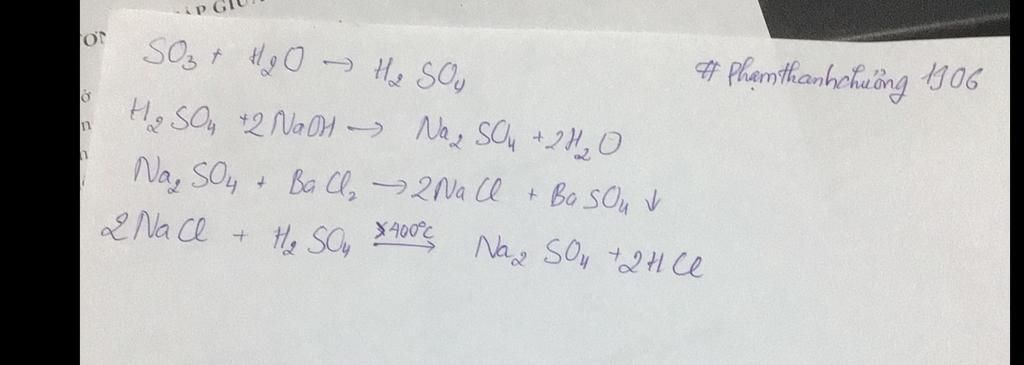 ẬP GIỮ
SO₃ + H₂O → H₂SO₄
#phạmthanhchường 1906
H₂SO₄ +2NaOH → Na₂SO₄ +2H₂O
Na₂SO₄ + BaCl₂ → 2NaCl + BaSO₄ ↓
2NaCl + H₂SO₄ →400°C Na₂SO₄ +2HCl